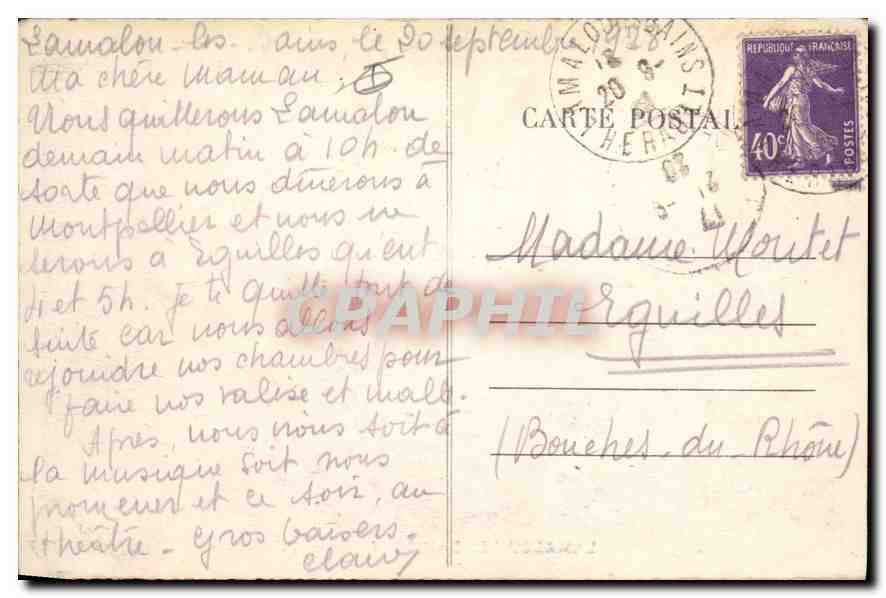 Lamalou-les-Bains le 20 septembre 1928
Ma chère Maman
Nous quitterons Lamalou
demain matin à 10h. de
sorte que nous dînerons à
Montpellier et nous ne
serons à Eguilles qu'ent
4 et 5h. Je te quitte tout de
suite car nous allons
rejoindre nos chambres pour
faire nos valise et malle.
Après, nous irons soit à
la musique soit nous
promener et ce soir, au
théâtre - Gros baisers.
Claire
CARTE POSTALE
LAMALOU-LES-BAINS
HERAULT
20
REPUBLIQUE FRANÇAISE
40c
POSTES
Madame Moutet
Eguilles
(Bouches-du-Rhône)
CPAPHIL